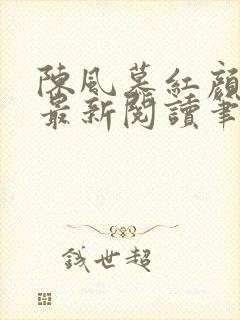 陳風慕紅顏
最新閱讀筆
錢世超